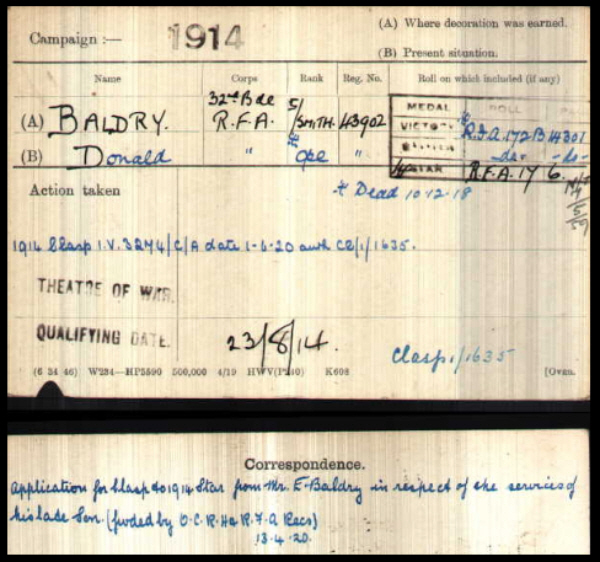 Campaign :— 1914
(A) Where decoration was earned.
(B) Present situation.
Name Corps Rank Reg. No. Roll on which included (if any)
32nd Bde
(A) BALDRY. R.F.A. S/SMITH. 43902
MEDAL ROLL
VICTORY R.F.A. 172B 14301
(B) Donald " " -do- -do-
STAR R.F.A. 17 6.
Action taken Dead 10-12-18
1914 Clasp I.V. 3274/C/A date 1-6-20 auth C2/1/1635.
THEATRE OF WAR.
QUALIFYING DATE. 23/8/14.
Clasp 1/1635
(6 34 46) W234—HP5590 500,000 4/19 HWV(P240) K608 [Over.
Correspondence.
Application for Clasp to 1914 Star from Mr. E. Baldry in respect of the services of
his late Son. (fwded by O.C. R.H. & R.F.A Recs)
13.4.20.